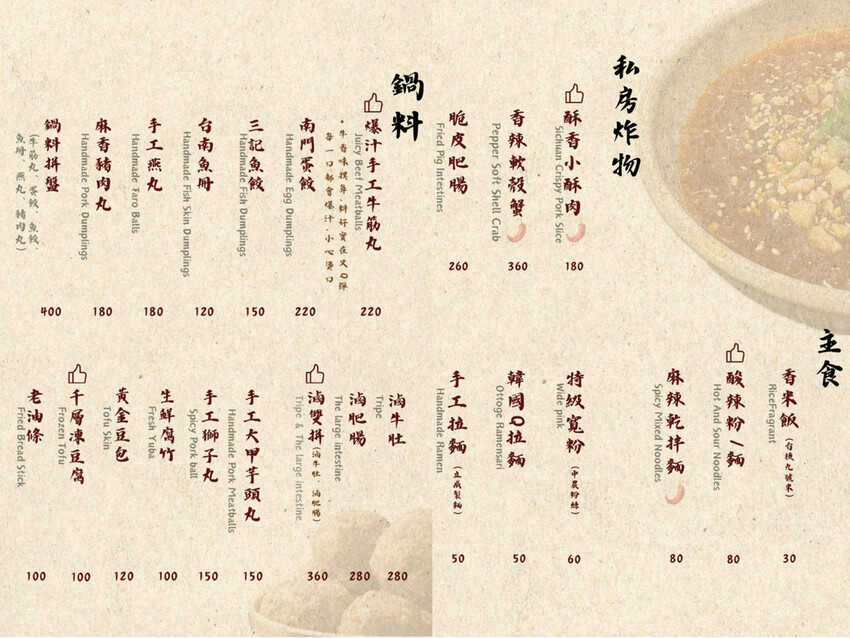 私房炸物
酥香小酥肉
Sichuan Crispy Pork Slice
180
香辣軟殼蟹
Pepper Soft Shell Crab
360
脆皮肥腸
Fried Pig Intestines
260
主食
香米飯(台稉九號米)
RiceFragrant
30
酸辣粉/麵
Hot And Sour Noodles
80
麻辣乾拌麵
Spicy Mixed Noodles
80
特級寬粉(中農粉絲)
Wide pink
60
韓國Q拉麵
Ottoge Ramensari
50
手工拉麵(立成製麵)
Handmade Ramen
50
鍋料
爆汁手工牛筋丸
Juicy Beef Meatballs
•牛香味撲鼻、料好實在又Q彈
每一口都會爆汁，小心燙口
220
南門蛋餃
Handmade Egg Dumplings
220
三記魚餃
Handmade Fish Dumplings
150
台南魚冊
Handmade Fish Skin Dumplings
120
手工燕丸
Handmade Taro Balls
180
麻香豬肉丸
Handmade Pork Dumplings
180
鍋料拼盤
(牛筋丸、蛋餃、魚餃、
魚冊、燕丸、豬肉丸)
400
滷牛肚
Tripe
280
滷肥腸
The large intestine
280
滷雙拼(滷牛肚、滷肥腸)
Tripe & The large intestine
360
手工大甲芋頭丸
Handmade Pork Meatballs
150
手工獅子丸
Spicy Pork ball
150
生鮮腐竹
Fresh Yuba
100
黃金豆包
Tofu Skin
120
千層凍豆腐
Frozen Tofu
100
老油條
Fried Bread Stick
100